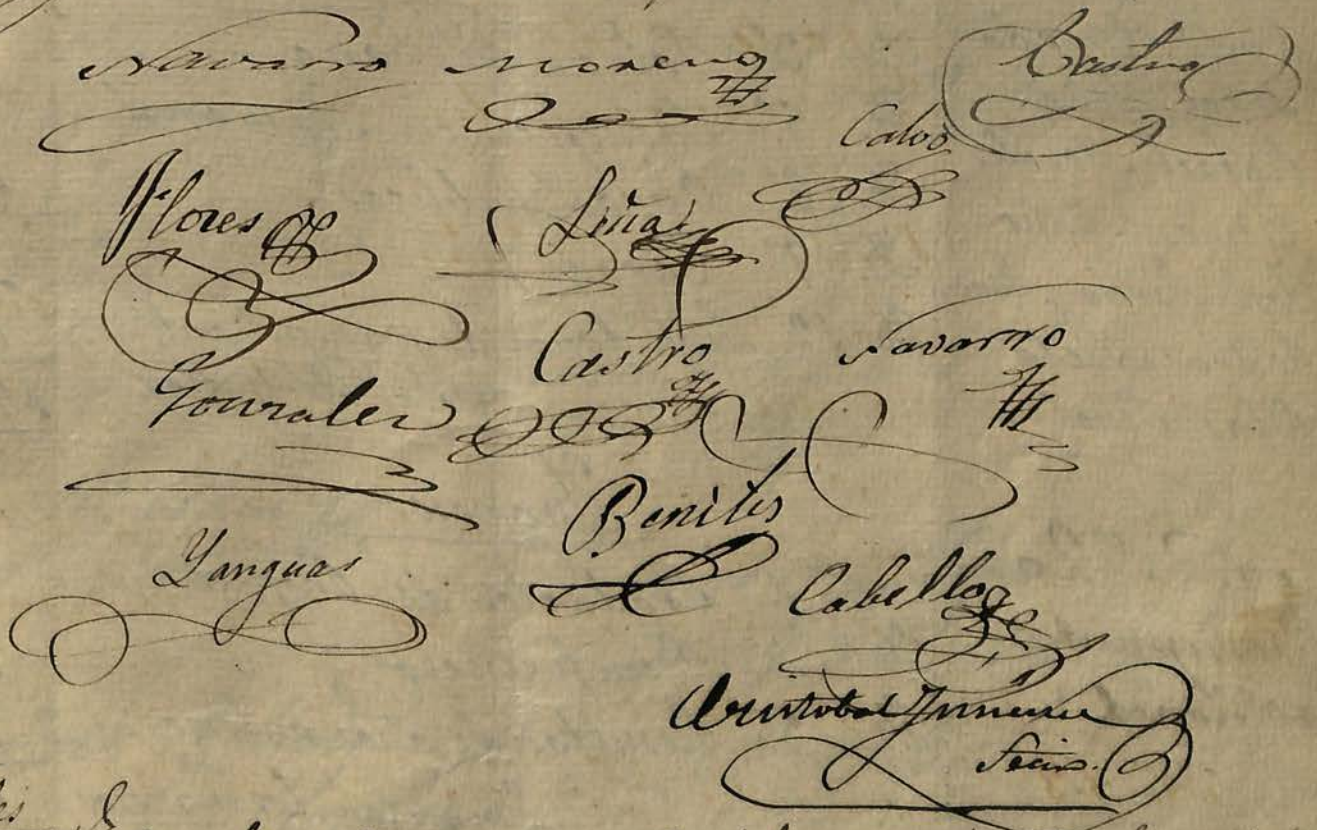 Navarro Moreno Castro
Calvo
Flores Liña
Castro Navarro
Gonzalez
Benites
Yanguas
Cabello
Cristobal Jimenez
Srio.